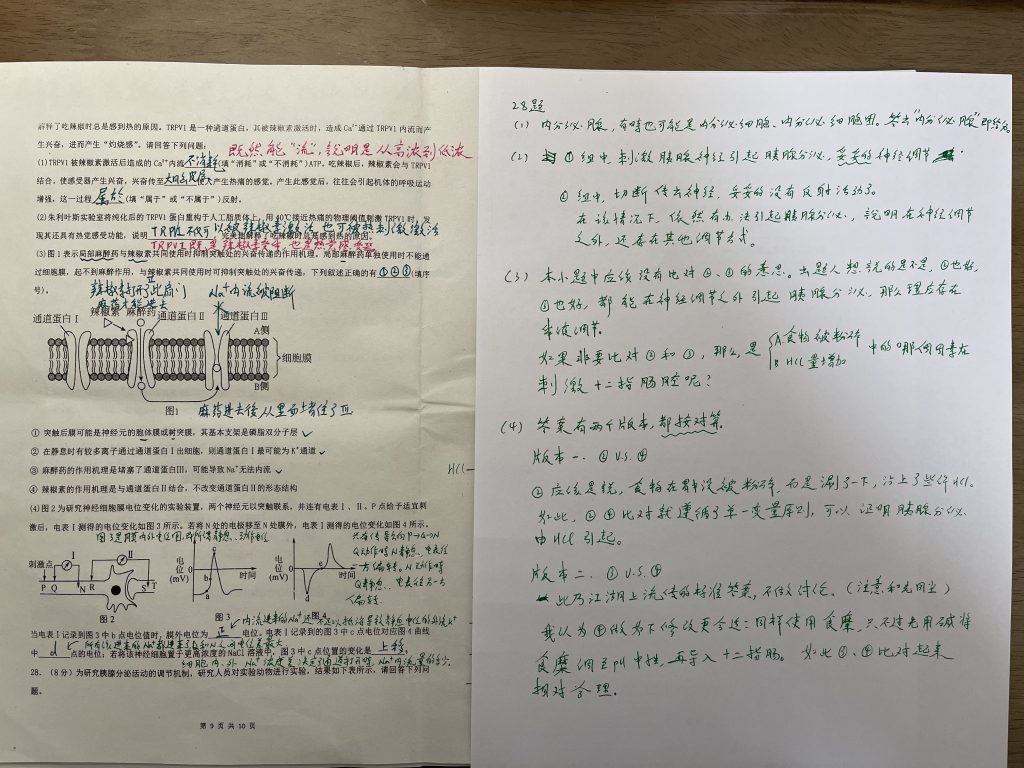 解释了吃辣椒时总是感到热的原因。TRPV1是一种通道蛋白，其被辣椒素激活时，造成Ca²⁺通过TRPV1内流而产
生兴奋，进而产生"灼烧感"。请回答下列问题：
既然能"流"，说明是从高浓到低浓
(1)TRPV1被辣椒素激活后造成的Ca²⁺内流不消耗(填"消耗"或"不消耗")ATP。吃辣椒后，辣椒素会与TRPV1
结合，使感受器产生兴奋，兴奋传至大脑皮层使人产生热痛的感觉。产生此感觉后，往往会引起机体的呼吸运动
增强，这一过程属于(填"属于"或"不属于")反射。
(2)朱利叶斯实验室将纯化后的TRPV1蛋白重构于人工脂质体上，用40℃接近热痛的物理阈值刺激TRPV1时，发
现其还具有热觉感受功能，说明
，完美地解释了吃辣椒时总是感到热的原因。
(3)图1表示局部麻醉药与辣椒素共同使用时抑制突触处的兴奋传递的作用机理。局部麻醉药单独使用时不能通
过细胞膜，起不到麻醉作用，与辣椒素共同使用时可抑制突触处的兴奋传递。下列叙述正确的有①②③(填序
号)。
辣椒素打开了此扇门
麻药才能进去
Na⁺内流被阻断
通道蛋白Ⅰ 辣椒素 麻醉药 通道蛋白Ⅱ 通道蛋白Ⅲ
A侧
细胞膜
B侧
图1
麻药进去后从里面堵住了Ⅲ
① 突触后膜可能是神经元的胞体膜或树突膜，其基本支架是磷脂双分子层
② 在静息时有较多离子通过通道蛋白Ⅰ出细胞，则通道蛋白Ⅰ最可能为K⁺通道
③ 麻醉药的作用机理是堵塞了通道蛋白Ⅲ，可能导致Na⁺无法内流
④ 辣椒素的作用机理是与通道蛋白Ⅱ结合，不改变通道蛋白Ⅱ的形态结构
(4)图2为研究神经细胞膜电位变化的实验装置，两个神经元以突触联系，并连有电表Ⅰ、Ⅱ。P点给予适宜刺
激后，电表Ⅰ测得的电位变化如图3所示。若将N处的电极移至N处膜外，电表Ⅰ测得的电位变化如图4所示。
刺激点 Ⅰ Ⅱ
P Q N R S T
图2
电位(mV) a b c 时间
图3
电位(mV) d 时间
图4
当电表Ⅰ记录到图3中b点电位值时，膜外电位为正电位。电表Ⅰ记录到的图3中c点电位对应图4曲线
中d点的电位，若将该神经细胞置于更高浓度的NaCl溶液中，图3中c点位置的变化是上移。
28. (8分)为研究胰腺分泌活动的调节机制，研究人员对实验动物进行实验，结果如下表所示，请回答下列问
题。
第9页共10页
HCl
28题
(1) 内分泌腺，有时也可能是内分泌细胞、内分泌细胞团。答出"内分泌腺"即给分。
(2) ①组中，刺激胰腺神经引起胰腺分泌，妥妥的神经调节。
②组中，切断传出神经，妥妥的没有反射活动了。
在该情况下，依然有办法引起胰腺分泌，说明在神经调节
之外，还存在其他调节方式。
(3) 本小题中应该没有比对②、③的意思。出题人想说的是不是，②也好，
③也好，都能在神经调节之外引起胰腺分泌，那么理应存在
体液调节。
如果非要比对②和③，那么是 A 食物被粉碎 B HCl量增加 中的哪个因素在
刺激十二指肠腔呢？
(4) 答案有两个版本，都按对算。
版本一. ② V.S. ④
②应该是说，食物在胃没被粉碎，而是涮了一下，沾上了些许HCl.
如此，②④比对就遵循了单一变量原则，可以证明胰腺分泌
由HCl引起。
版本二. ③ V.S. ④
此乃江湖上流传的标准答案，不做讨论。(注意和光同尘)
我认为④做如下修改更合适：同样使用食糜，只不过先用碱将
食糜调至pH中性，再导入十二指肠。如此③、④比对起来
相对合理.